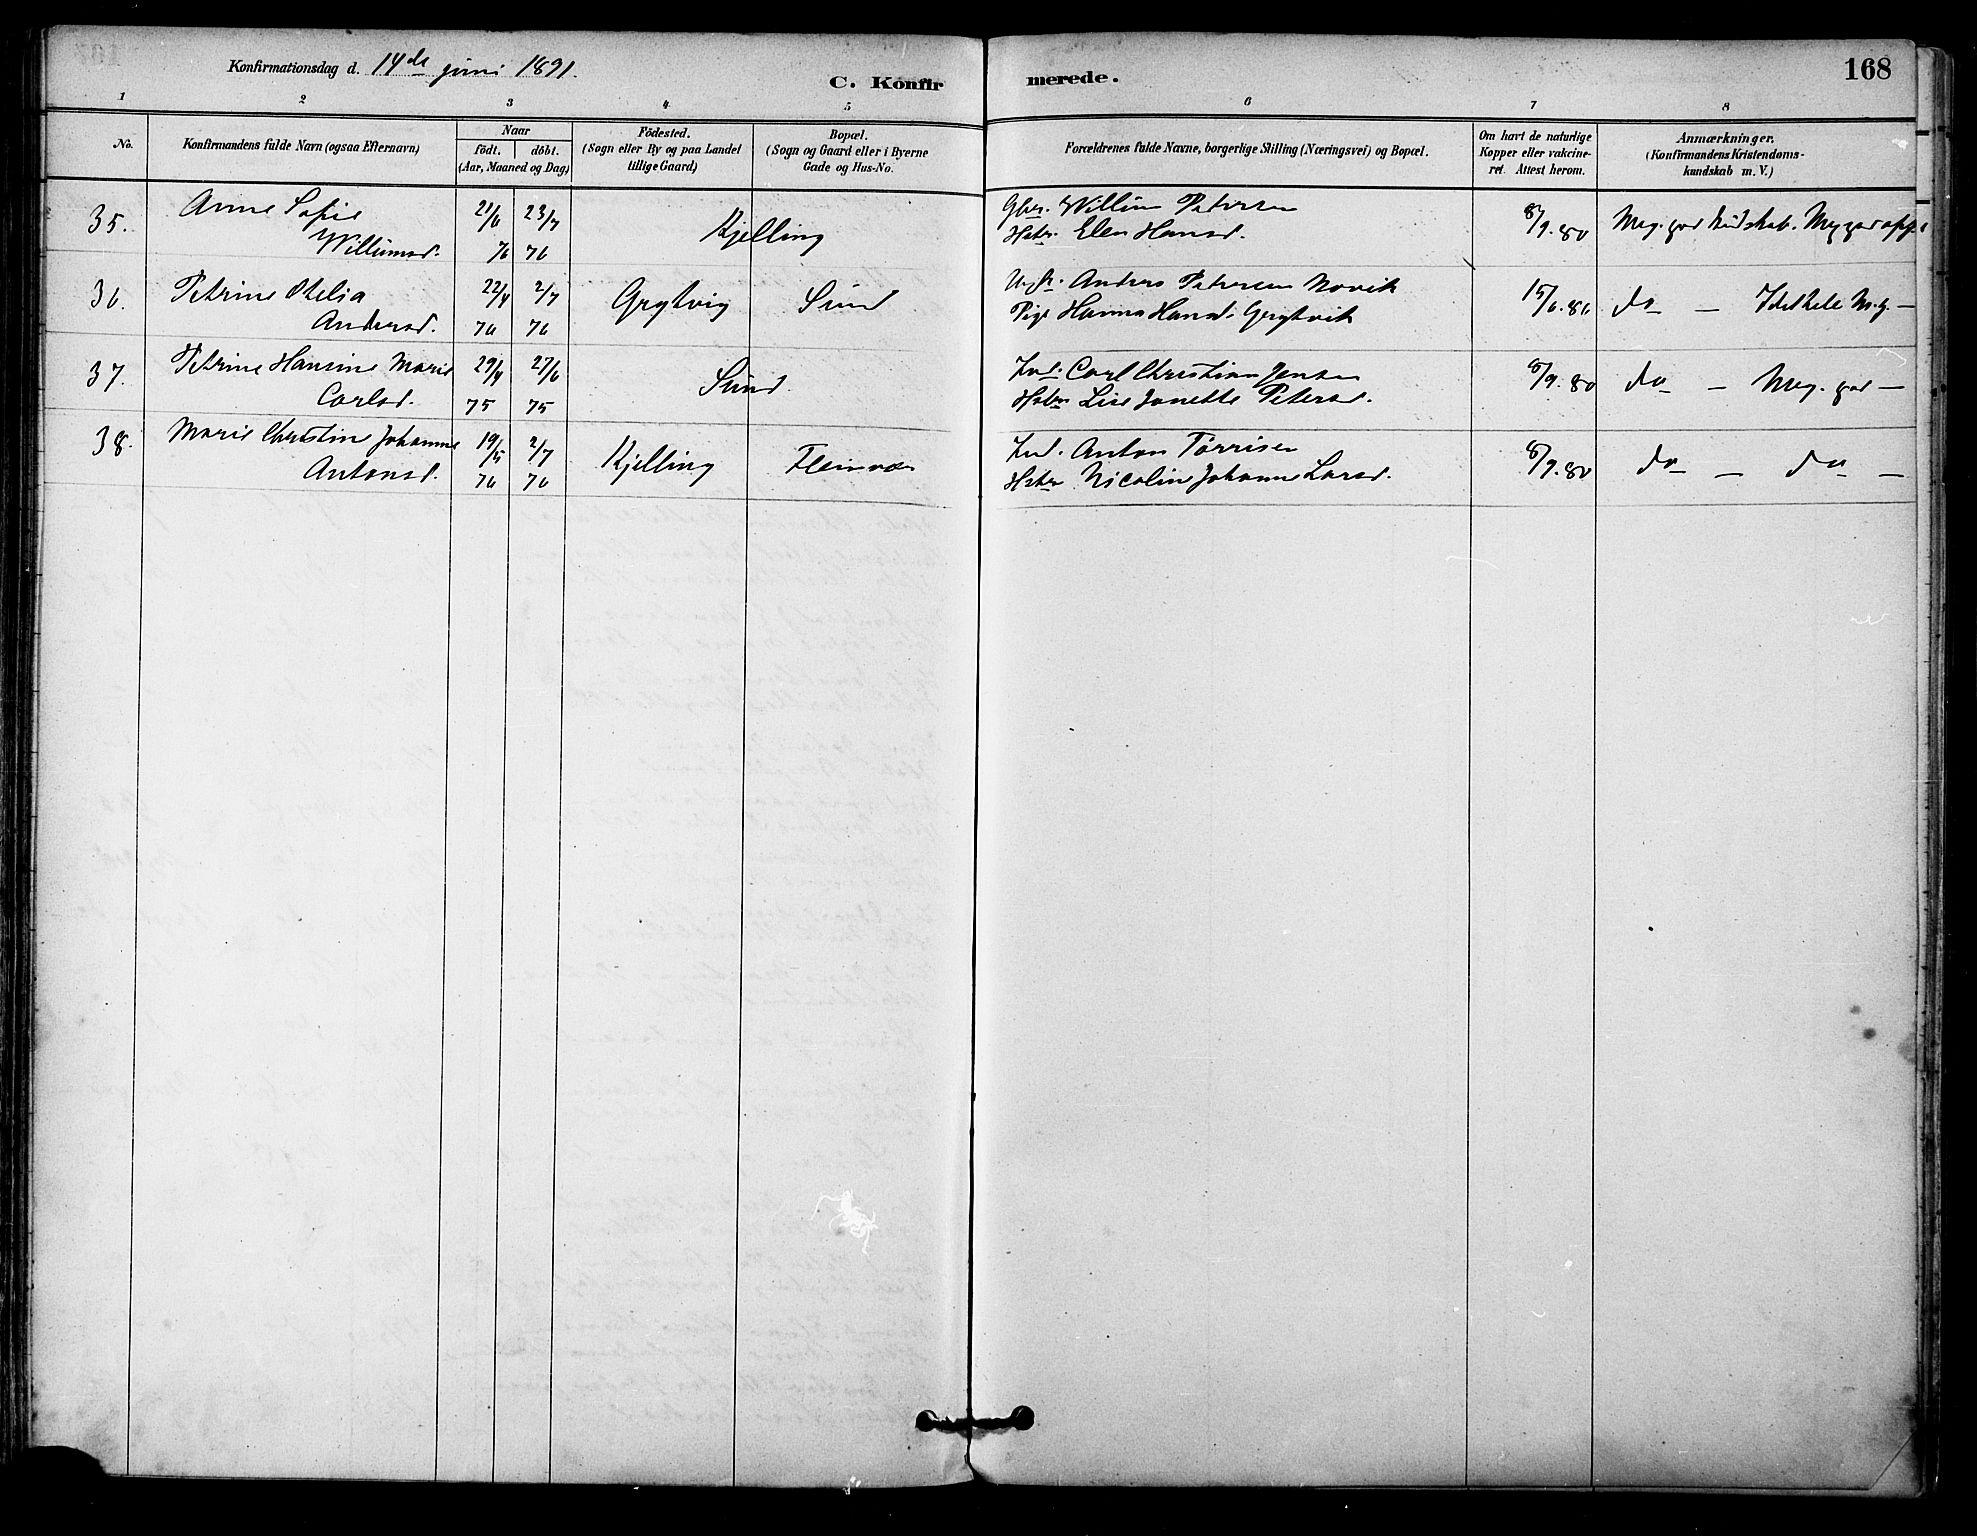 168
Konfirmationsdag d. 14de juni 1891.
C. Konfirmerede.
1 2 3 4 5 6 7 8
No.
Konfirmandens fulde Navn (ogsaa Efternavn)
Naar
födt. döbt.
(Aar, Maaned og Dag)
Födested.
(Sogn eller By og paa Landet tillige Gaard)
Bopæl.
(Sogn og Gaard eller i Byerne Gade og Hus-No.
Forældrenes fulde Navne, borgerlige Stilling (Næringsvei) og Bopæl.
Om havt de naturlige Kopper eller vakcineret. Attest herom.
Anmærkninger.
(Konfirmandens Kristendomskundskab m. V.)
35. Anne Sofie 21/6 23/7 Kjelling Gbr. Willum Petersen 8/9.80 Meg. god kudskab. Meg god
Willumsd. 76 76 Hstr. Elen Hansd.
36. Petrine Otelia 22/4 2/7 Grytvig Sund Anders Petersen Novik 15/6.86 do — Meg —
Andersd. 76 76 Pige Hanna Hansd. Grytvik
37. Petrine Hansine Marie 29/4 27/6 Sund Ind. Carl Christian Jensen 8/9.80 do — Meg. god —
Carlsd. 75 75 Hstr Lise Janette Petersd.
38. Marie Christine Johanne 19/5 2/7 Kjelling Fleinvær Ind. Anton Tørrisen 8/9.80 do — do —
Antonsd. 76 76 Hstr Nicoline Johanne Larsd.